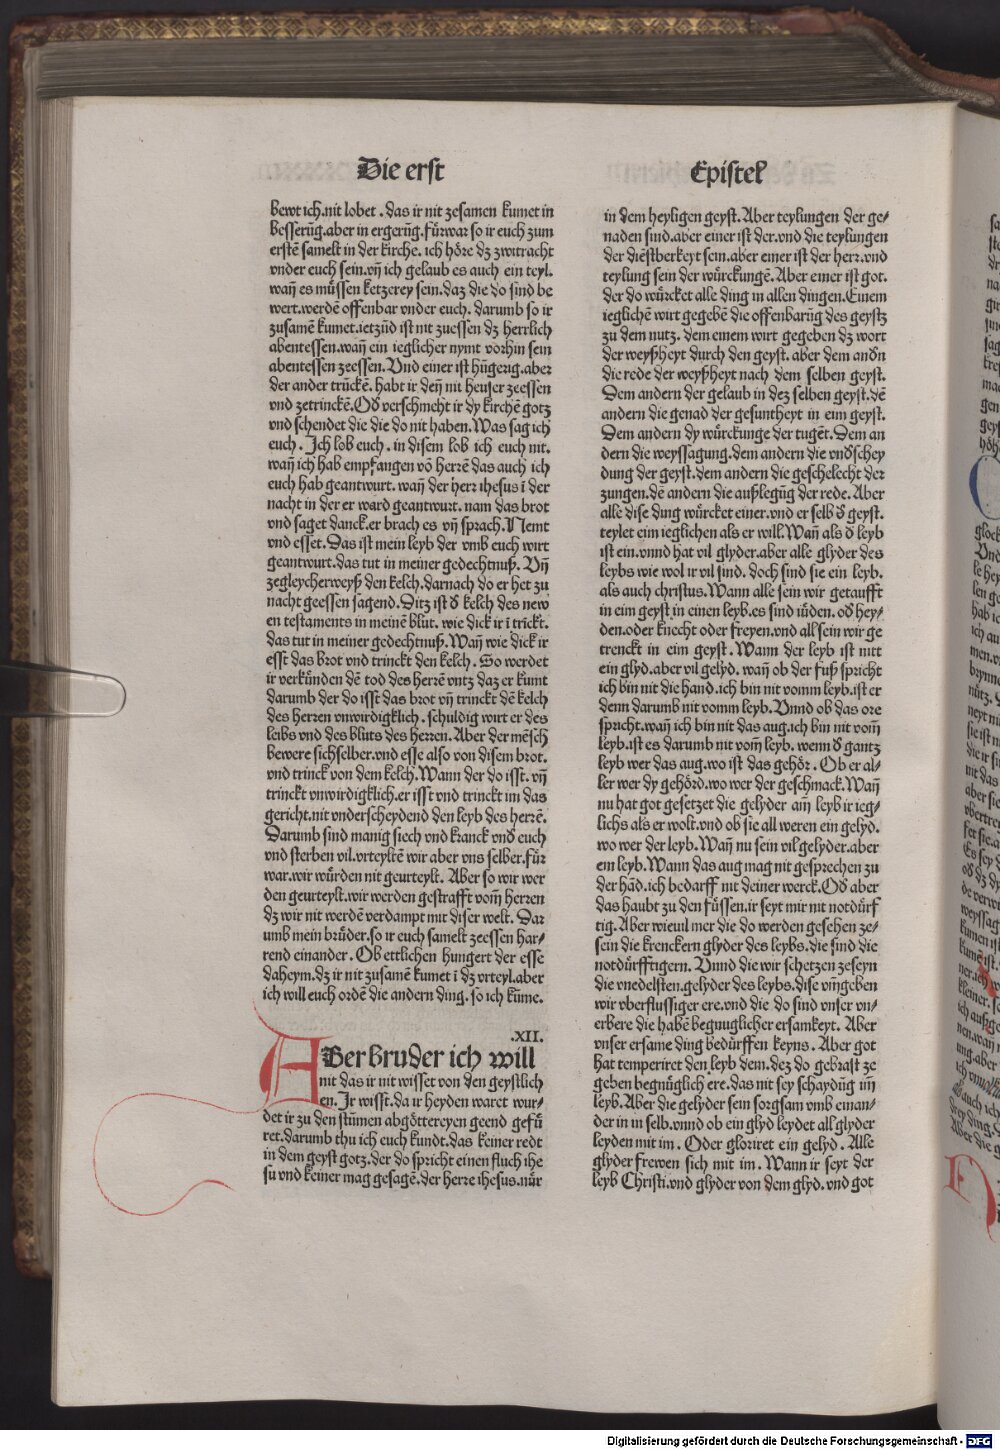 Die erst
Epistel
bewt ich.nit lobet. das ir nit zesamen kumet in
besserūg.aber in ergerūg.fürwar so ir euch zum
erstē samelt in der kirche. ich höre dz zwitracht
vnder euch sein.vñ ich gelaub es auch ein teyl.
wañ es müssen ketzerey sein.daz die do sind be
wert.werdē offenbar vnder euch. darumb so ir
zusamē kumet.ietzūd ist nit zuessen dz herrlich
abentessen.wañ ein ieglicher nymt vorhin sein
abentessen zeessen.Vnd einer ist hūgerig.aber
der ander trūckē. habt ir deñ nit heuser zeessen
vnd zetrinckē.Od verschmeht ir dy kirchē gotz
vnd schendet die die do nit haben.Was sag ich
euch. Ich lob euch. in disem lob ich euch nit.
wañ ich hab empfangen vō herrē das auch ich
euch hab geantwurt. wañ der herr ihesus ī der
nacht in der er ward geantwurt. nam das brot
vnd saget danck.er brach es vñ sprach. Nemt
vnd esset.Das ist mein leyb der vmb euch wirt
geantwurt.das tut in meiner gedechtnuß. Vñ
zegleycherweyß den kelch.darnach do er het zu
nacht geessen sagend.Ditz ist d kelch des new
en testaments in meinē blut. wie dick ir ī trickt.
das tut in meiner gedechtnuß.Wañ wie dick ir
esst das brot vnd trinckt den kelch. So werdet
ir verkünden dē tod des herrē vntz daz er kumt
darumb der do isst das brot vñ trinckt dē kelch
des herren vnwirdigklich. schuldig wirt er des
leibs vnd des bluts des herren. Aber der mēsch
bewere sichselber.vnd esse also von disem brot.
vnd trinck von dem kelch.Wann der do isst. vñ
trinckt vnwirdigklich.er isst vnd trinckt im das
gericht.nit vnderscheydend den leyb des herrē.
Darumb sind manig siech vnd kranck vnd euch
vnd sterben vil.vrteyltē wir aber vns selber.für
war.wir würden nit geurteylt. Aber so wir wer
den geurteylt.wir werden gestrafft vom̄ herren
dz wir nit werdē verdampt mit diser welt. Dar
umb mein brüder.so ir euch samelt zeessen har⸗
rend einander. Ob ettlichen hungert der esse
daheym.dz ir nit zusamē kumet ī dz vrteyl.aber
ich will euch ordē die andern ding. so ich kūme.
.XII.
ABer bruder ich will
nit das ir nit wisset von den geystlich
en. Ir wisst.da ir heyden waret wur⸗
det ir zu den stūmen abgöttereyen geend gefü
ret.darumb thu ich euch kundt.das keiner redt
in dem geyst gotz.der do spricht einen fluch ihe
su vnd keiner mag gesagē.der herre ihesus.nür
in dem heyligen geyst.Aber teylungen der ge⸗
naden sind.aber einer ist der.vnd die teylungen
der diēstberkeyt sein.aber einer ist der herr.vnd
teylung sein der würckungē.Aber einer ist got.
der do würcket alle ding in allen dingen.Einem
ieglichē wirt gegebē die offenbarūg des geystz
zu dem nutz. dem einem wirt gegeben dz wort
der weyßheyt durch den geyst. aber dem andn
die rede der weyßheyt nach dem selben geyst.
Dem andern der gelaub in dez selben geyst.dē
andern die genad der gesuntheyt in eim geyst.
Dem andern dy würckunge der tugēt.Dem an
dern die weyssagung.dem andern die vndschey
dung der geyst.dem andern die geschelecht der
zungen.dē andern die außlegūg der rede. Aber
alle dise ding würcket einer.vnd er selb d geyst.
teylet eim ieglichen als er will.Wañ als d leyb
ist ein.vnnd hat vil glyder.aber alle glyder des
leybs wie wol ir vil sind. doch sind sie ein leyb.
als auch christus.Wann alle sein wir getaufft
in eim geyst in einen leyb.es sind iüden. od hey⸗
den.oder knecht oder freyen.vnd all sein wir ge
trenckt in eim geyst. Wann der leyb ist nitt
ein glyd.aber vil gelyd. wañ ob der fuß spricht
ich bin nit die hand.ich bin nit vomm leyb.ist er
denn darumb nit vomm leyb. Vnnd ob das ore
spricht.wañ ich bin nit das aug.ich bin nit vom̄
leyb.ist es darumb nit vom̄ leyb. wenn d gantz
leyb wer das aug.wo ist das gehör. Ob er al⸗
ler wer dy gehörd.wo wer der geschmack.Wañ
nu hat got gesetzet die gelyder am̄ leyb ir ieg⸗
lichs als er wolt.vnd ob sie all weren ein gelyd.
wo wer der leyb.Wañ nu sein vil gelyder.aber
ein leyb.Wann das aug mag nit gesprechen zu
der hād.ich bedarff nit deiner werck.Od aber
das haubt zu den füssen.ir seyt mir nit notdürf
tig.Aber wieuil mer die do werden gesehen ze⸗
sein die krenckern glyder des leybs.die sind die
notdürfftigern. Vnnd die wir schetzen zeseyn
die vnedelsten.gelyder des leybs.dise vm̄geben
wir vberflussiger ere.vnd die do sind vnser vn⸗
erbere die habē begnuglicher ersamkeyt. Aber
vnser ersame ding bedürffen keyns. Aber got
hat temperiret den leyb dem.dez do gebrast ze
geben begnüglich ere.das nit sey schaydūg im̄
leyb.Aber die gelyder sein sorgsam vmb einan⸗
der in in selb.vnnd ob ein glyd leydet all glyder
leyden mit im. Oder gloriret ein gelyd. Alle
glyder frewen sich mit im. Wann ir seyt der
leyb Christi.vnd glyder von dem glyd. vnd got
Digitalisierung gefördert durch die Deutsche Forschungsgemeinschaft - DFG